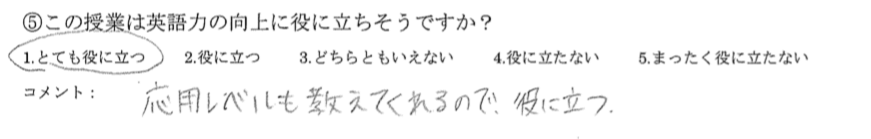 ⑤この授業は英語力の向上に役に立ちそうですか？
1.とても役に立つ 2.役に立つ 3.どちらともいえない 4.役に立たない 5.まったく役に立たない
コメント： 応用レベルも教えてくれるので、役に立つ.